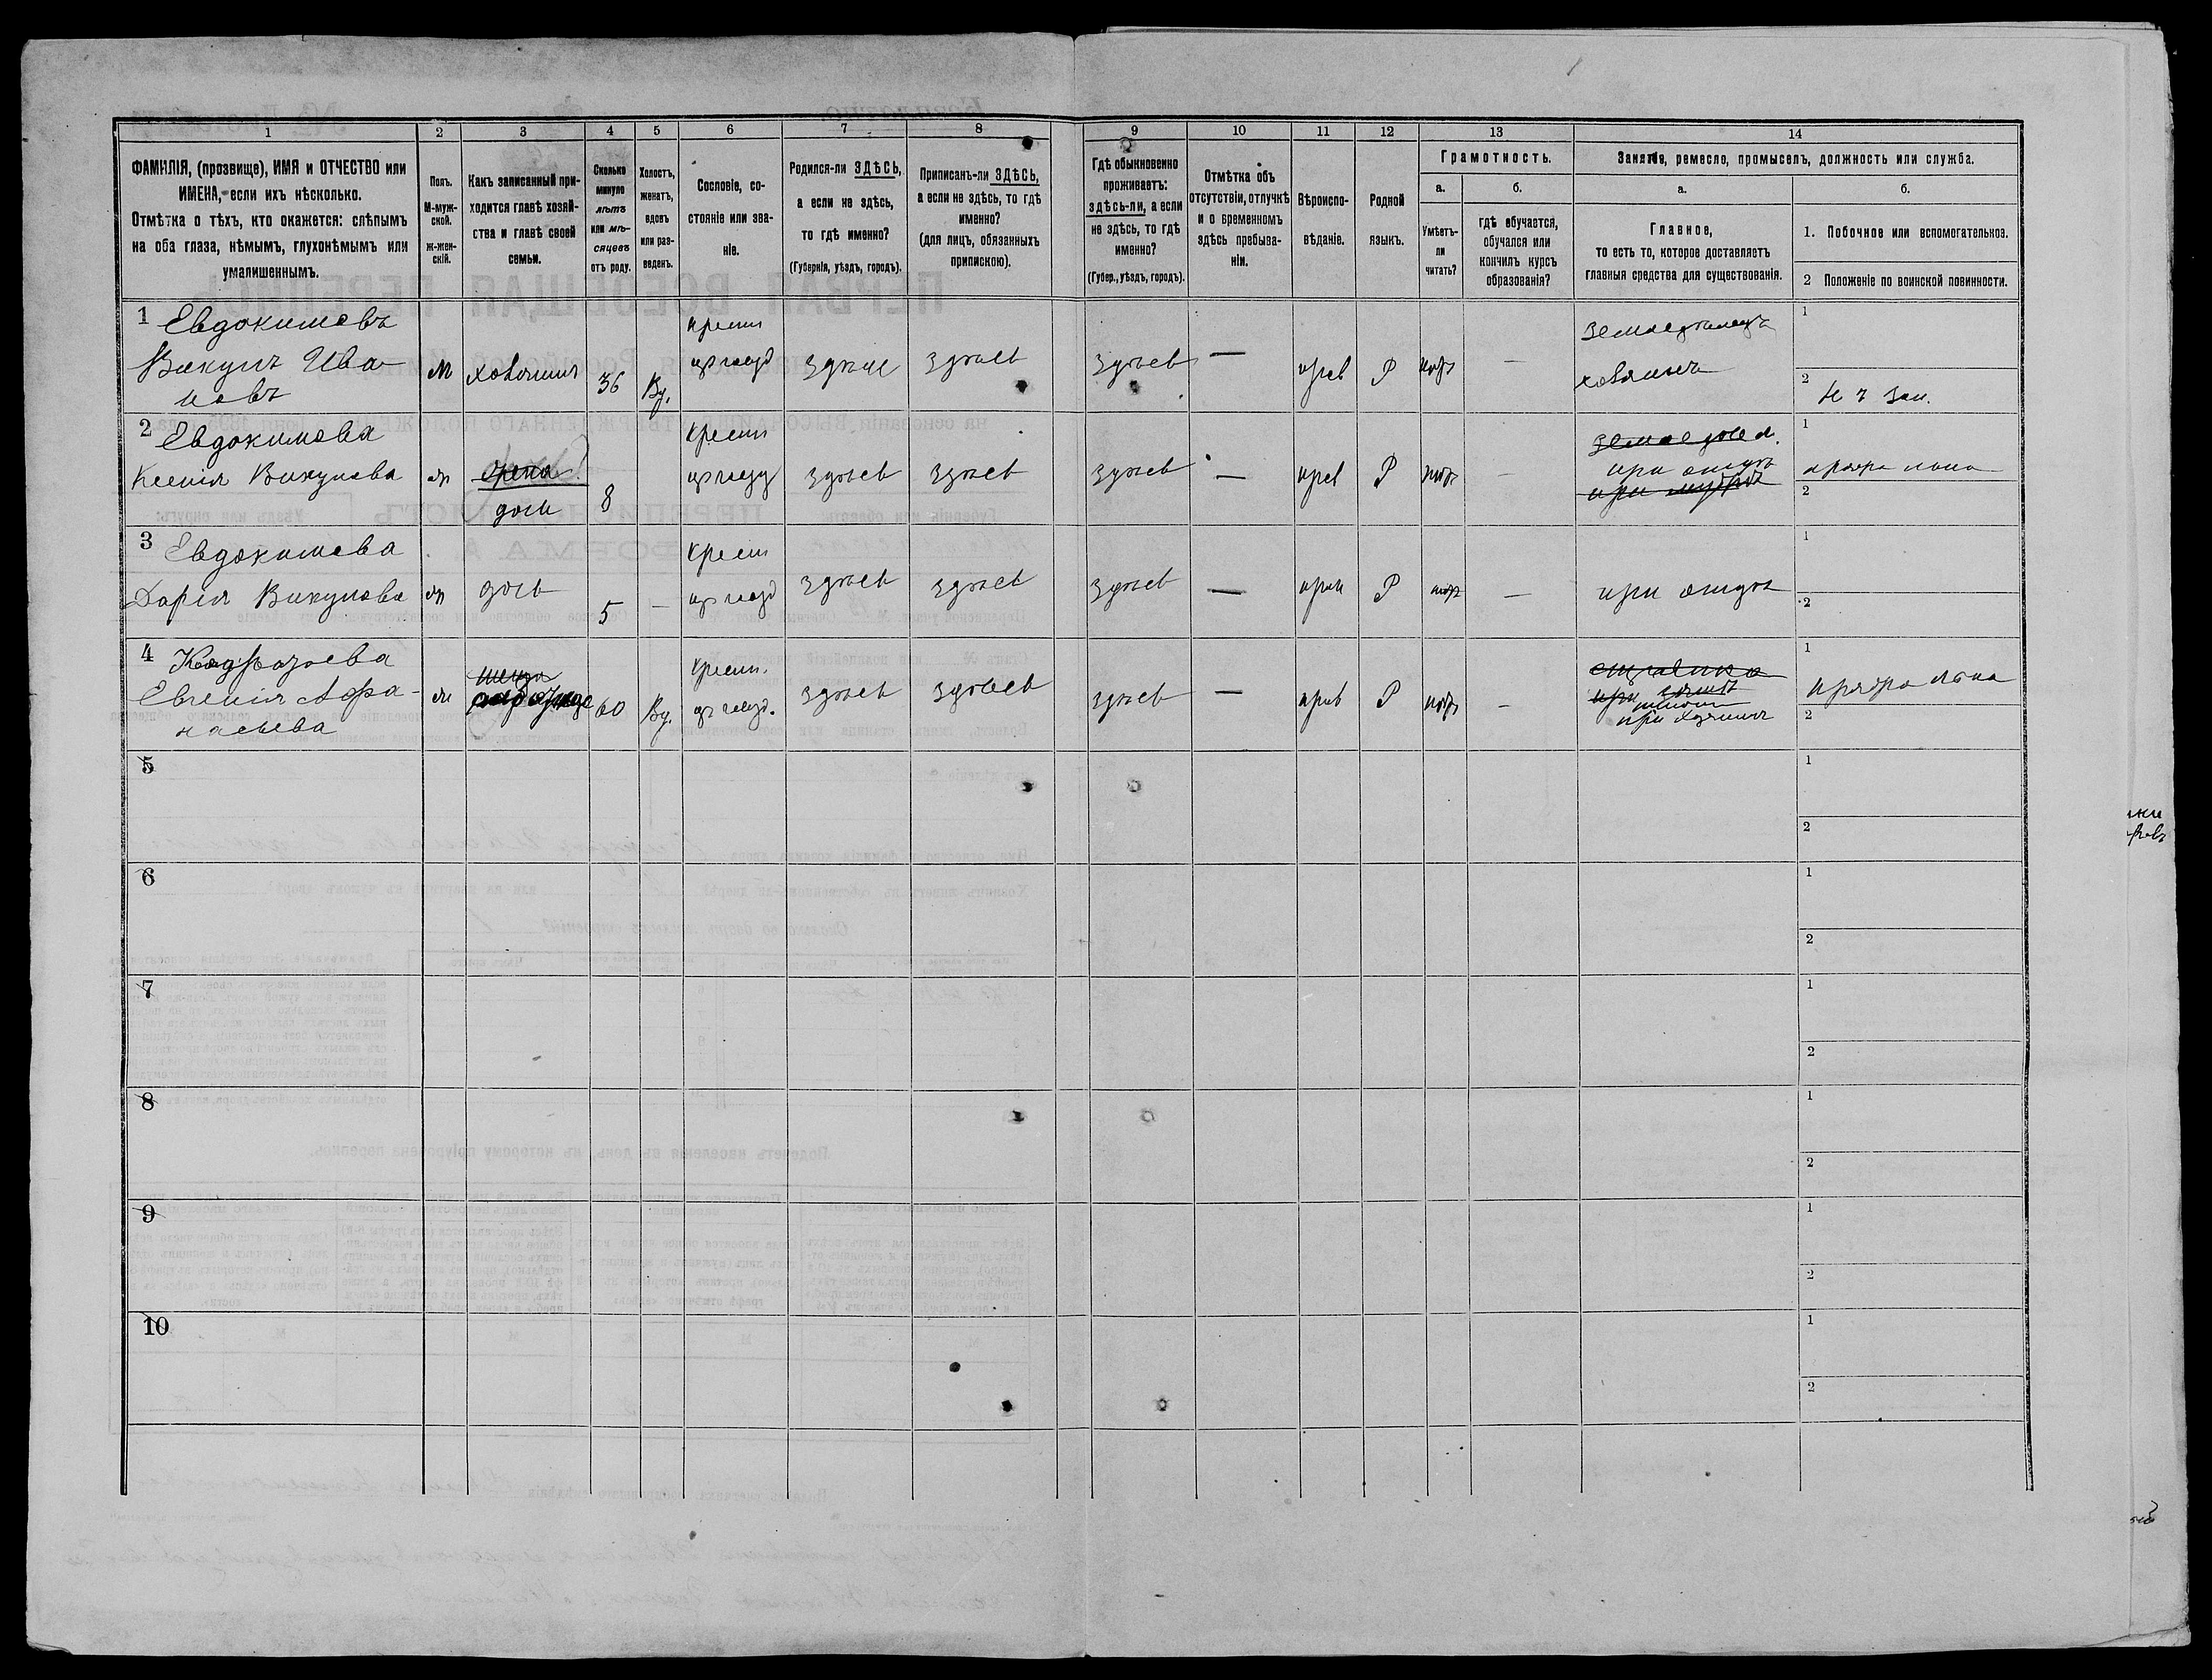 1
2
3
4
5
6
7
8
9
10
11
12
13
14
ФАМИЛІЯ, (прозвище), ИМЯ и ОТЧЕСТВО или
ИМЕНА, если ихъ нѣсколько.
Отмѣтка о тѣхъ, кто окажется: слѣпымъ
на оба глаза, нѣмымъ, глухонѣмымъ или
умалишеннымъ.
Полъ.
М-муж-
ской.
ж-жен-
скій.
Какъ записанный при-
ходится главѣ хозяй-
ства и главѣ своей
семьи.
Сколько
минуло
лѣтъ
или мѣ-
сяцевъ
отъ роду.
Холостъ,
женатъ,
вдовъ
или раз-
веденъ.
Сословіе, со-
стояніе или зва-
ніе.
Родился-ли ЗДѢСЬ,
а если не здѣсь,
то гдѣ именно?
(Губернія, уѣздъ, городъ).
Приписанъ-ли ЗДѢСЬ,
а если не здѣсь, то гдѣ
именно?
(для лицъ, обязанныхъ
припискою).
Гдѣ обыкновенно
проживаетъ:
здѣсь-ли, а если
не здѣсь, то гдѣ
именно?
(Губер., уѣздъ, городъ).
Отмѣтка объ
отсутствіи, отлучкѣ
и о временномъ
здѣсь пребыва-
ніи.
Вѣроиспо-
вѣданіе.
Родной
языкъ.
Грамотность.
а.
Умѣетъ-
ли
читать?
б.
гдѣ обучается,
обучался или
кончилъ курсъ
образованія?
Занятіе, ремесло, промыселъ, должность или служба.
а.
Главное,
то есть то, которое доставляетъ
главныя средства для существованія.
б.
1. Побочное или вспомогательное.
2 Положеніе по воинской повинности.
1 Евдокимовъ
Викулъ Ива-
новъ
м
хозяинъ
36
Вд.
крест
здѣсь
здѣсь
здѣсь
—
прав
Р
нѣтъ
—
земледѣлецъ
хозяинъ
1
2
2 Евдокимова
Ксенія Викулова
ж
жена
дочь
8
крест
здѣсь
здѣсь
здѣсь
—
прав
Р
нѣтъ
—
при отцѣ
1
пряжа льна
2
3 Евдокимова
Дарія Викулова
ж
дочь
5
—
крест
здѣсь
здѣсь
здѣсь
—
прав
Р
нѣтъ
—
при отцѣ
1
2
4
Евгенія Афа-
насьева
60
Вд.
крест.
здѣсь
здѣсь
здѣсь
—
прав
Р
нѣтъ
—
при хозяинѣ
1
пряжа льна
2
5
1
2
6
1
2
7
1
2
8
1
2
9
1
2
10
1
2